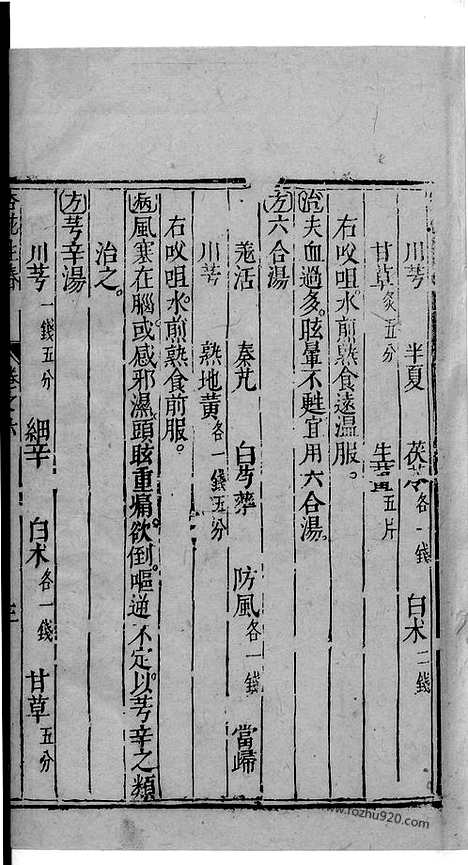 川芎 半夏 茯苓各一錢 白术二錢
甘草炙五分 生薑五片
右㕮咀水煎熟食遠溫服。
治 夫血過多。眩暈不甦宜用六合湯。
方 六合湯
羗活 秦艽 白芍藥 防風各一錢 當歸
川芎 熟地黃各一錢五分
右㕮咀水煎熟食前服。
病 風塞在腦。或感邪濕。頭眩重痛。欲倒。嘔逆不定。以芎辛之類
治之。
方 芎辛湯
川芎一錢五分 細辛 白术各一錢 甘草五分
卷之
www.fozhu920.com